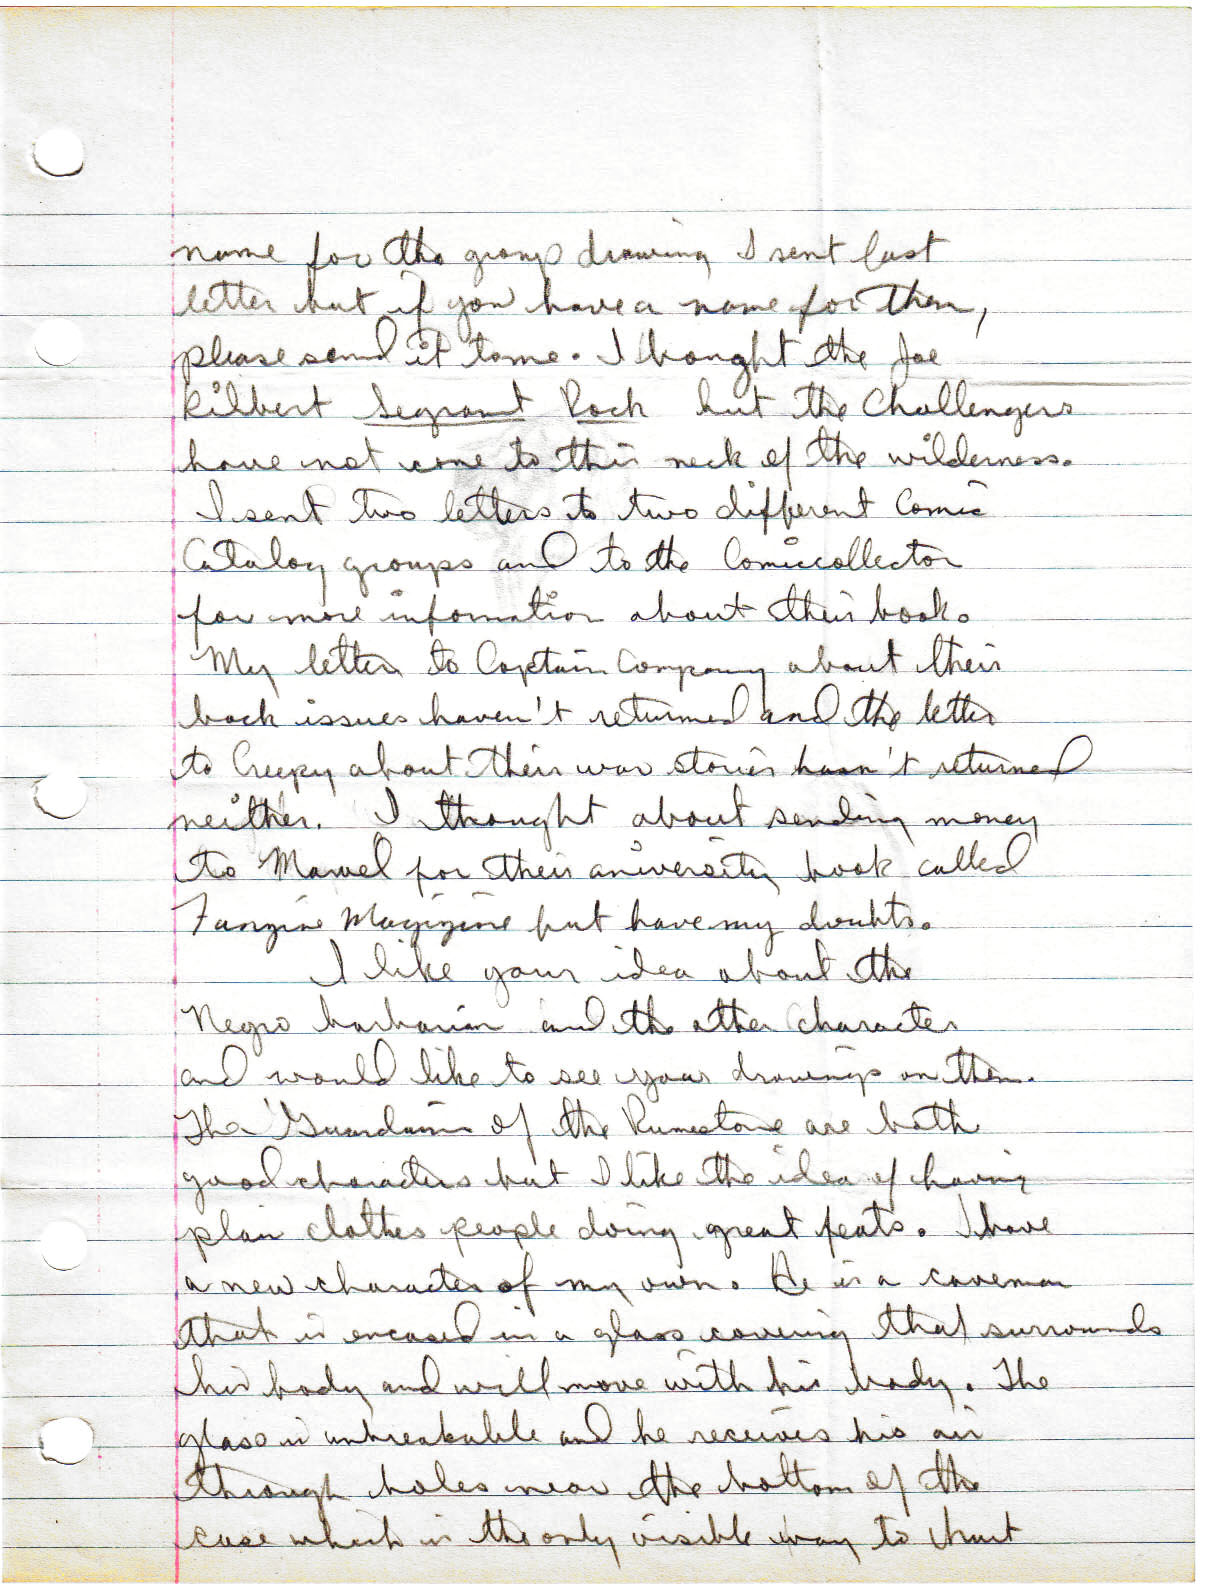 name for the group drawing I sent last
letter but if you have a name for them,
please send it to me. I bought the Joe
Kilbert Segrant Rock but the Challengers
have not come to this neck of the wilderness.
I sent two letters to two different Comic
Catalog groups and to the Comiccollector
for more infomation about their book.
My letter to Captain Company about their
back issues haven't returned and the letter
to Creepy about their war stories hasn't returned
neither. I thought about sending money
to Marvel for their aniversity book called
Fanzine Magizine but have my doubts.
I like your idea about the
Negro barbarian and the other character
and would like to see your drawings on them.
The Guardians of the Runestone are both
good characters but I like the idea of having
plain clothes people doing great feats. I have
a new character of my own. He is a caveman
that is encased in a glass covering that surrounds
his body and will move with his body. The
glass is unbreakable and he receives his air
through holes near the bottom of the
case which is the only visible way to hurt